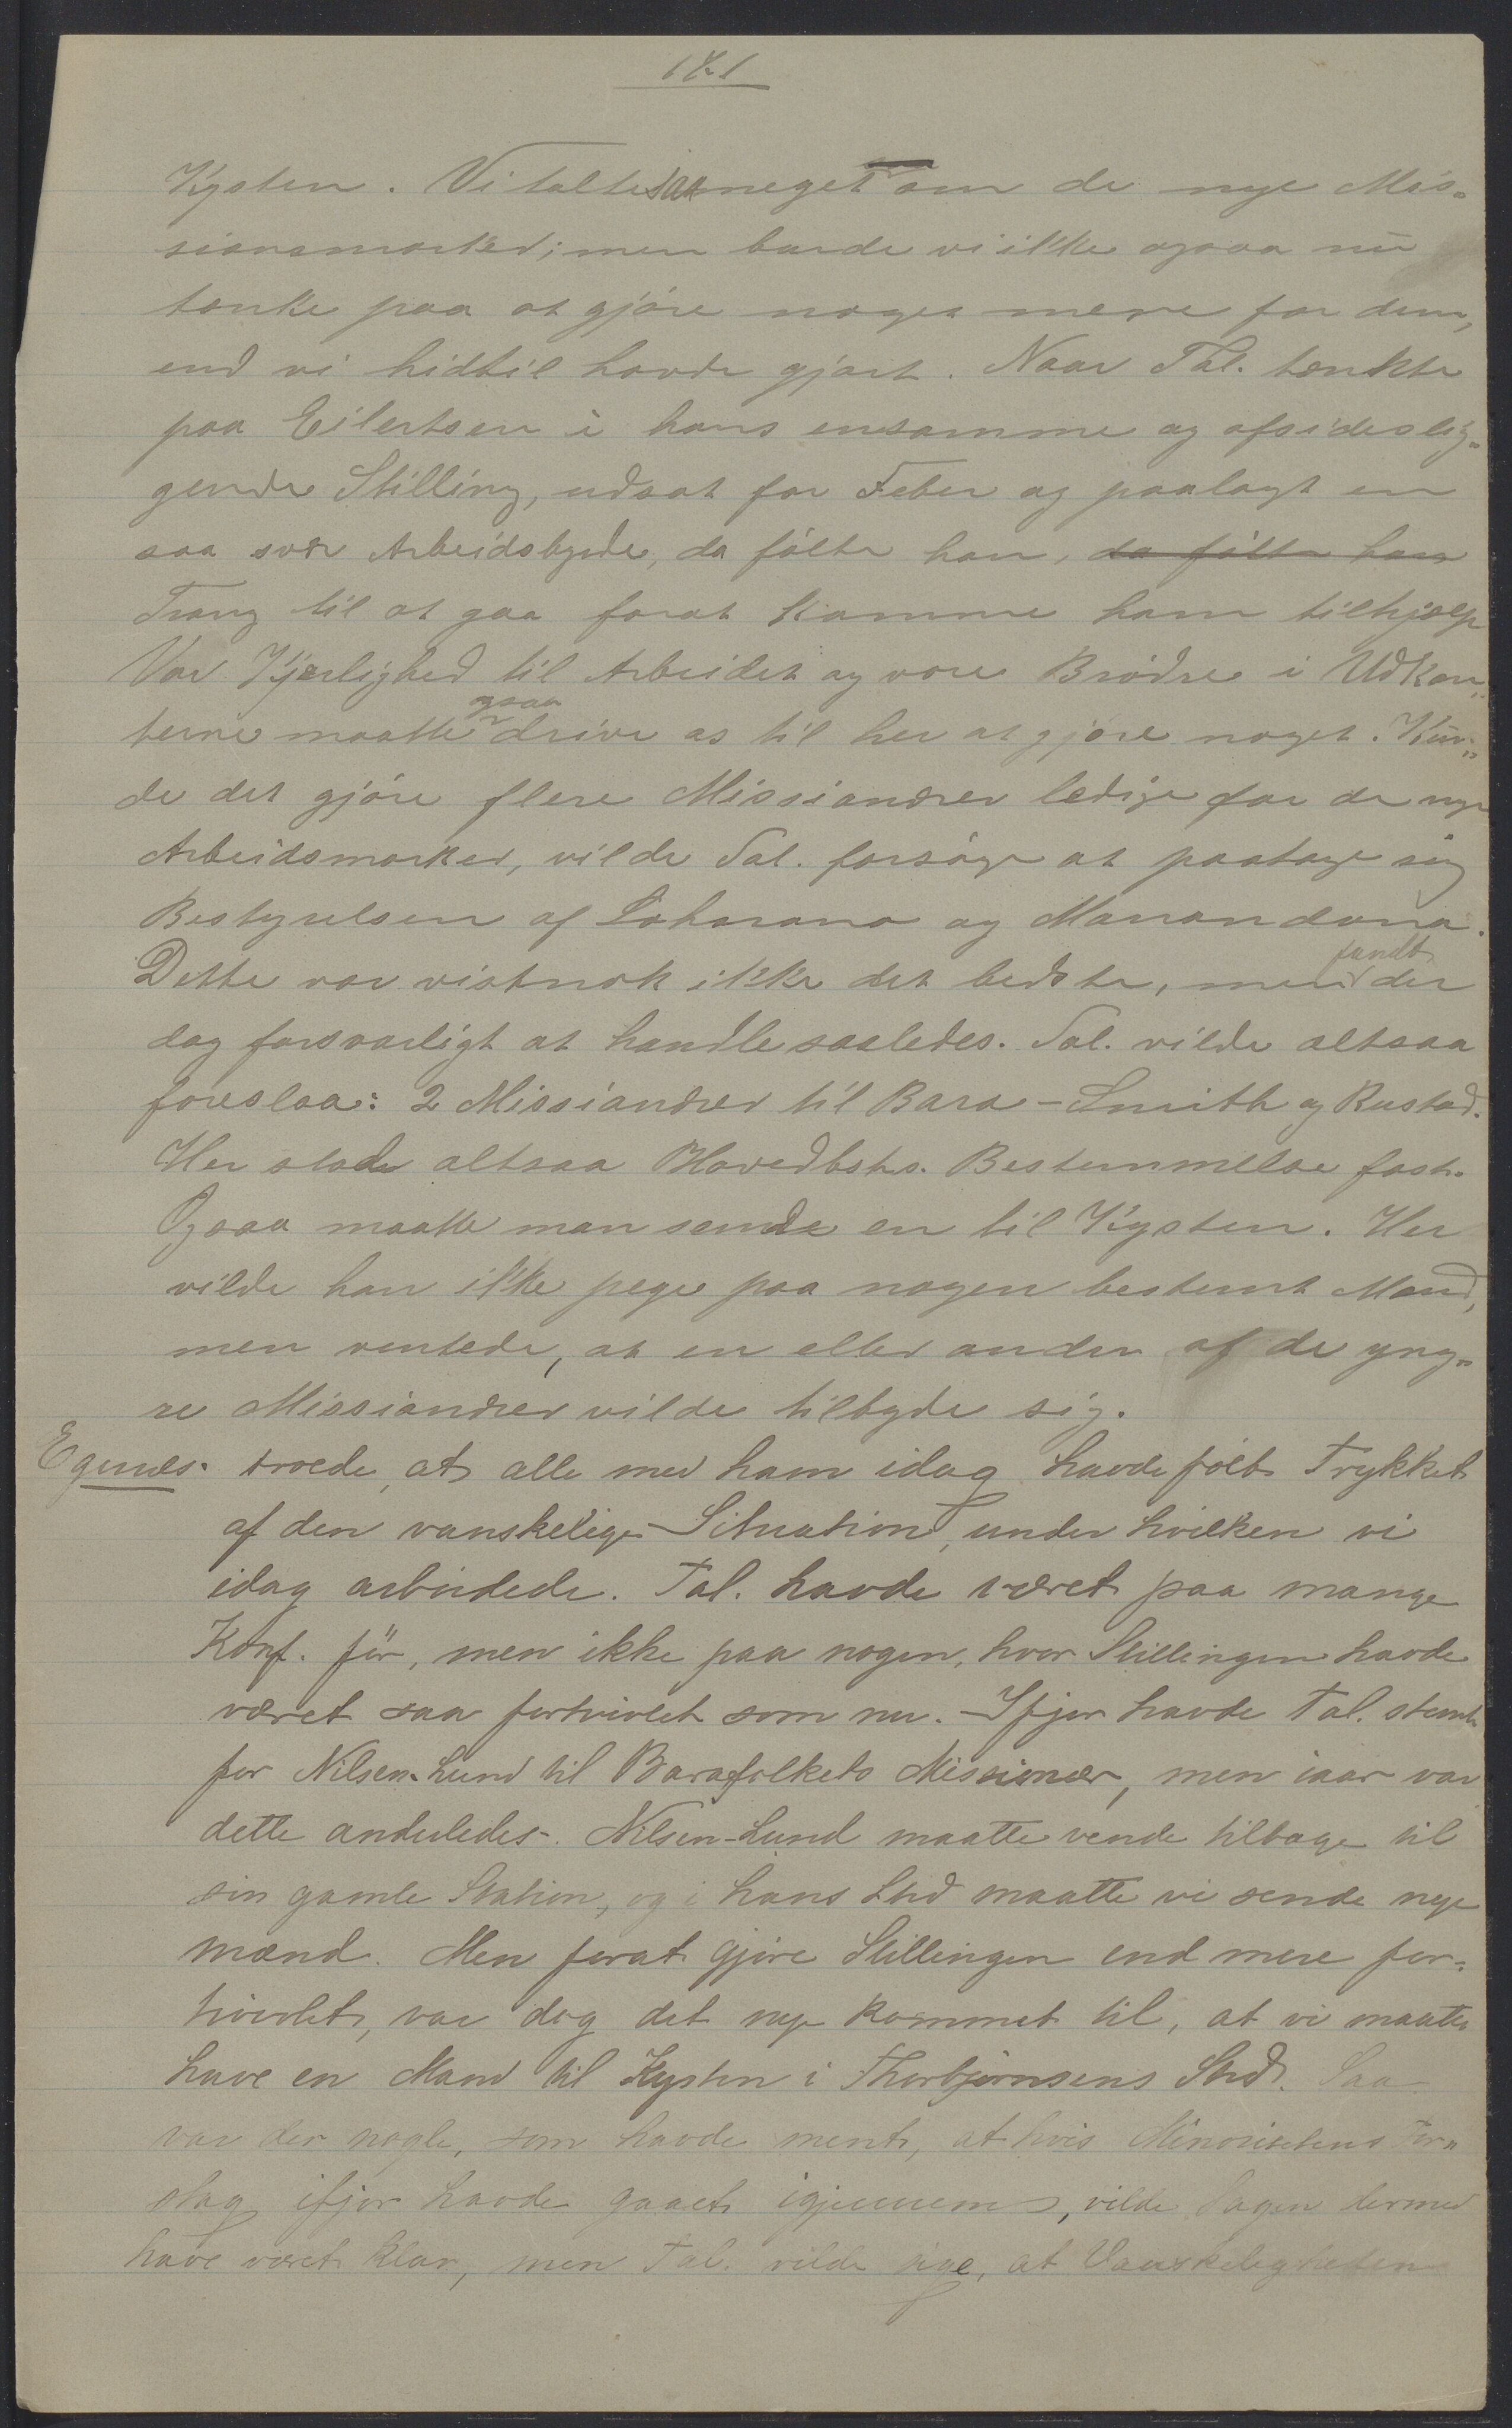 Kysten. Vi talte saa meget om de nye Mis-
sionsmarker; men burde vi ikke ogsaa nu
tænke paa at gjöre noget mere for dem,
end vi hidtil havde gjort. Naar Tal. tænkte
paa Eilertsen i hans ensomme og afsideslig-
gende Stilling, udsat for Feber og paalagt en
saa svær Arbeidsbyrde, da fölte han, da fölte han
Trang til at gaa forat komme ham tilhjælp
Vor Kjærlighed til Arbeidet og vore Brödre i Udkan-
terne maatte ogsaa drive os til her at gjöre noget. Kun-
de det gjöre flere Missionærer ledige for de nye
Arbeidsmarker, vilde Tal. forsöge at paatage sig
Bestyrelsen af Loharano og Manandona.
Dette var vistnok ikke det bedste, men fandt det
dog forsvarligt at handle saaledes. Tal. vilde altsaa
foreslaa: 2 Missionærer til Bara - Smith og Rustad.
Her stode altsaa Hovedbsts. Bestemmelse fast.
Ogsaa maatte man sende en til Kysten. Her
vilde han ikke pege paa nogen bestemt Mand,
men ventede, at en eller anden af de yng-
re Missionærer vilde tilbyde sig.
Egenæs. troede, at alle med ham idag havde fölt Trykket
af den vanskelige Situation, under hvilken vi
idag arbeidede. Tal. havde været paa mange
Konf. för, men ikke paa nogen, hvor Stillingen havde
været saa fortvivlet som nu. Ifjor havde Tal. stemt
for Nilsen-Lund til Barafolkets Missionær, men iaar var
dette anderledes. Nilsen-Lund maatte vende tilbage til
sin gamle Station, og i hans Sted maatte vi sende nye
mænd. Men forat gjöre Stillingen end mere for-
tvivlet, var dog det nye kommet til, at vi maatte
have en Mand til Kysten i Thorbjörnsens Sted. Saa
var der nogle, som havde ment, at hvis Minoritetens For-
slag ifjor havde gaaet igjennem, vilde Sagen dermed
have været klar, men Tal. vilde sige, at Vanskeligheden